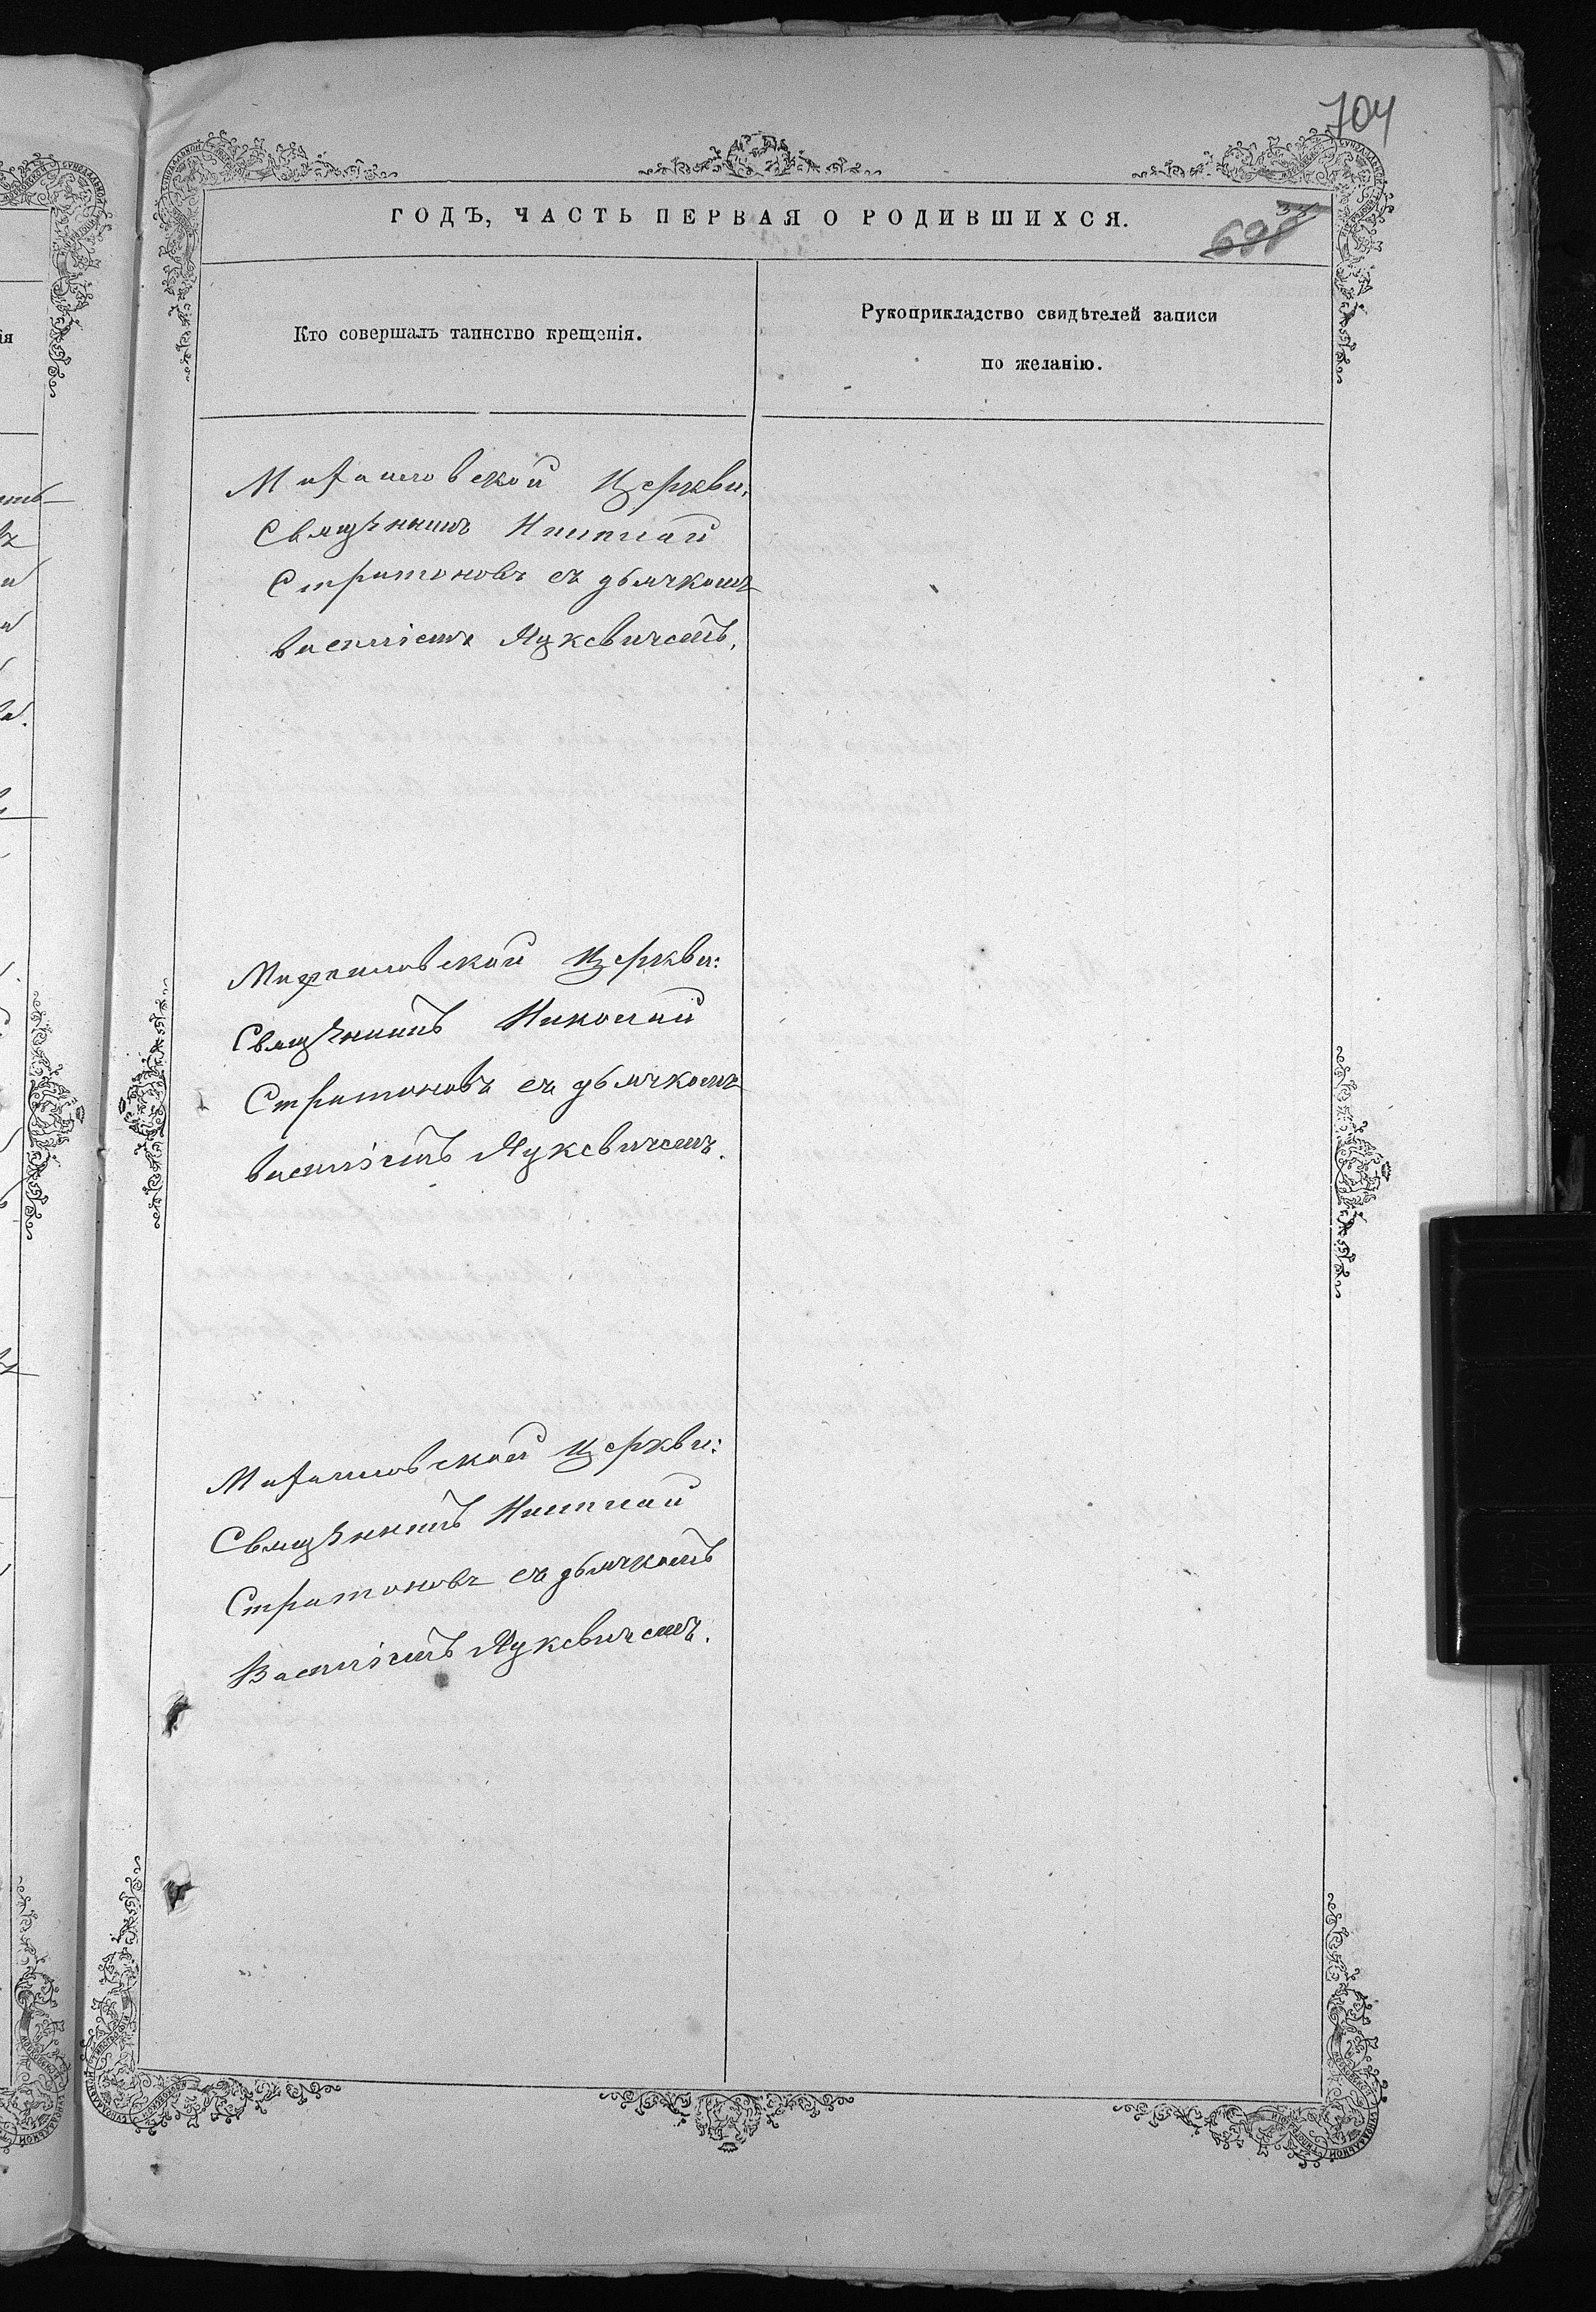 704
ГОДЪ, ЧАСТЬ ПЕРВАЯ О РОДИВШИХСЯ.
Кто совершалъ таинство крещенія.
Рукоприкладство свидѣтелей записи
по желанію.
Михаиловской Церкви,
Священникъ Николай
Стратоновъ съ дьячкомъ
Василіемъ Яцкевичемъ.
Михаиловской Церкви:
Священникъ Николай
Стратоновъ съ дьячкомъ
Василіемъ Яцкевичемъ.
Михаиловской Церкви:
Священникъ Николай
Стратоновъ съ дьячкомъ
Василіемъ Яцкевичемъ.